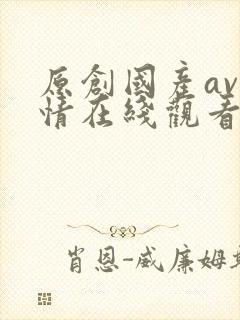 原創國產av
情在綫觀看
肖恩-威廉姆斯